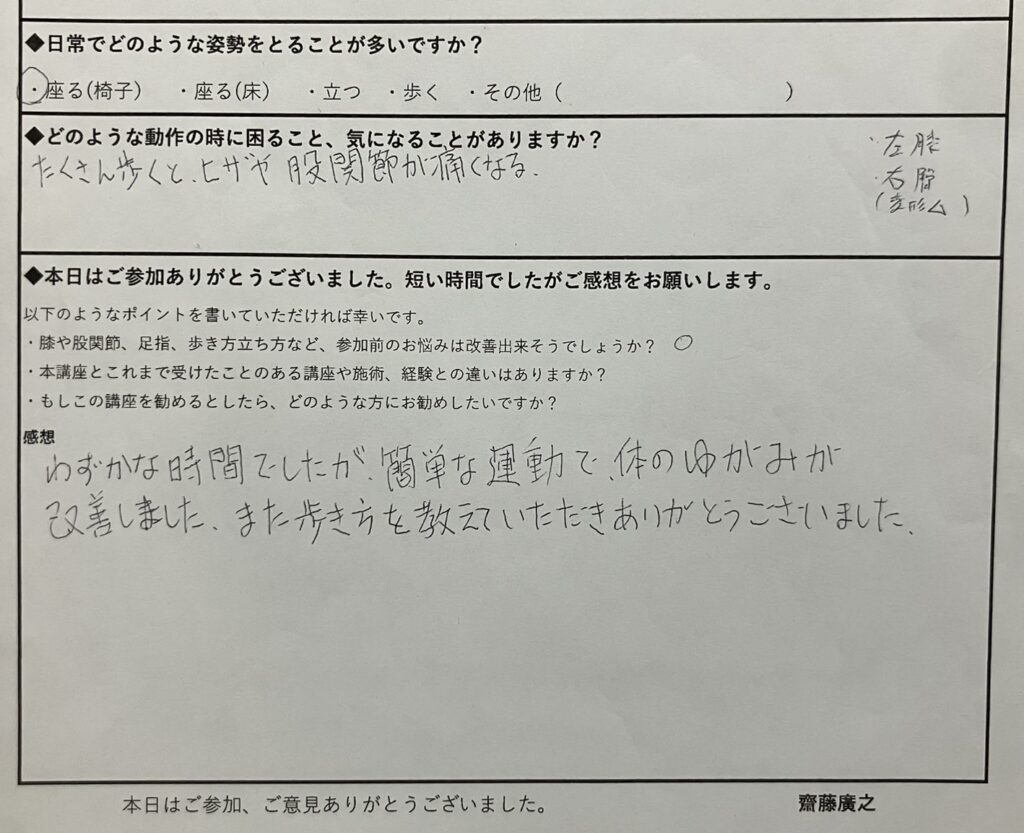 ◆日常でどのような姿勢をとることが多いですか？
・座る(椅子)　・座る(床)　・立つ　・歩く　・その他（　　　　　　　　　　　）
◆どのような動作の時に困ること、気になることがありますか？
たくさん歩くと、ヒザや股関節が痛くなる.
・左膝
・右
(変形 )
◆本日はご参加ありがとうございました。短い時間でしたがご感想をお願いします。
以下のようなポイントを書いていただければ幸いです。
・膝や股関節、足指、歩き方立ち方など、参加前のお悩みは改善出来そうでしょうか？ ○
・本講座とこれまで受けたことのある講座や施術、経験との違いはありますか？
・もしこの講座を勧めるとしたら、どのような方にお勧めしたいですか？
感想
わずかな時間でしたが、簡単な運動で、体のゆがみが
改善しました、また歩き方を教えていただきありがとうございました、
本日はご参加、ご意見ありがとうございました。　齋藤廣之